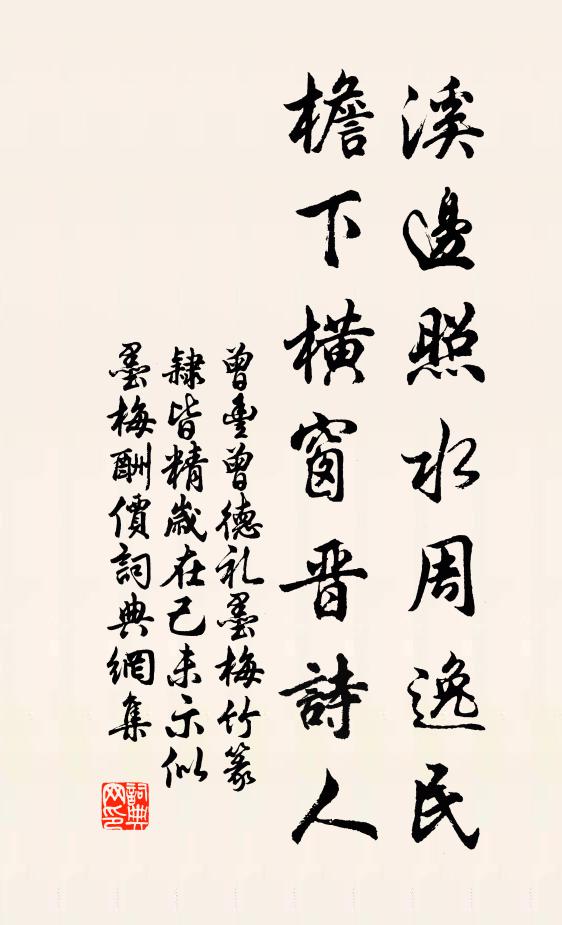 溪邊照水周逸民
檐下橫窗晋詩人
曾豊曾德礼墨梅竹篆
隸皆精歲在己未示似
墨梅酬價詞典網集
詞典网印